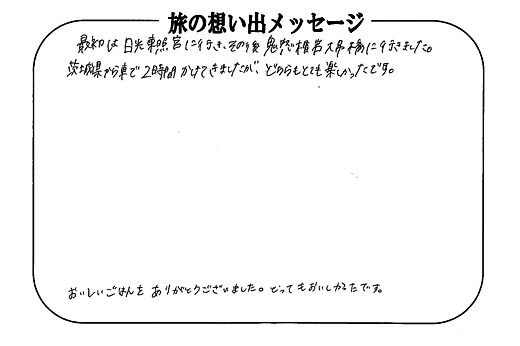 旅の想い出メッセージ
最初は日光東照宮に行き、その後 鬼怒楯岩大吊橋に行きました。
茨城県から車で2時間かけてきましたが、どちらもとても楽しかったです。
おいしいごはんを ありがとうございました。とってもおいしかったです。